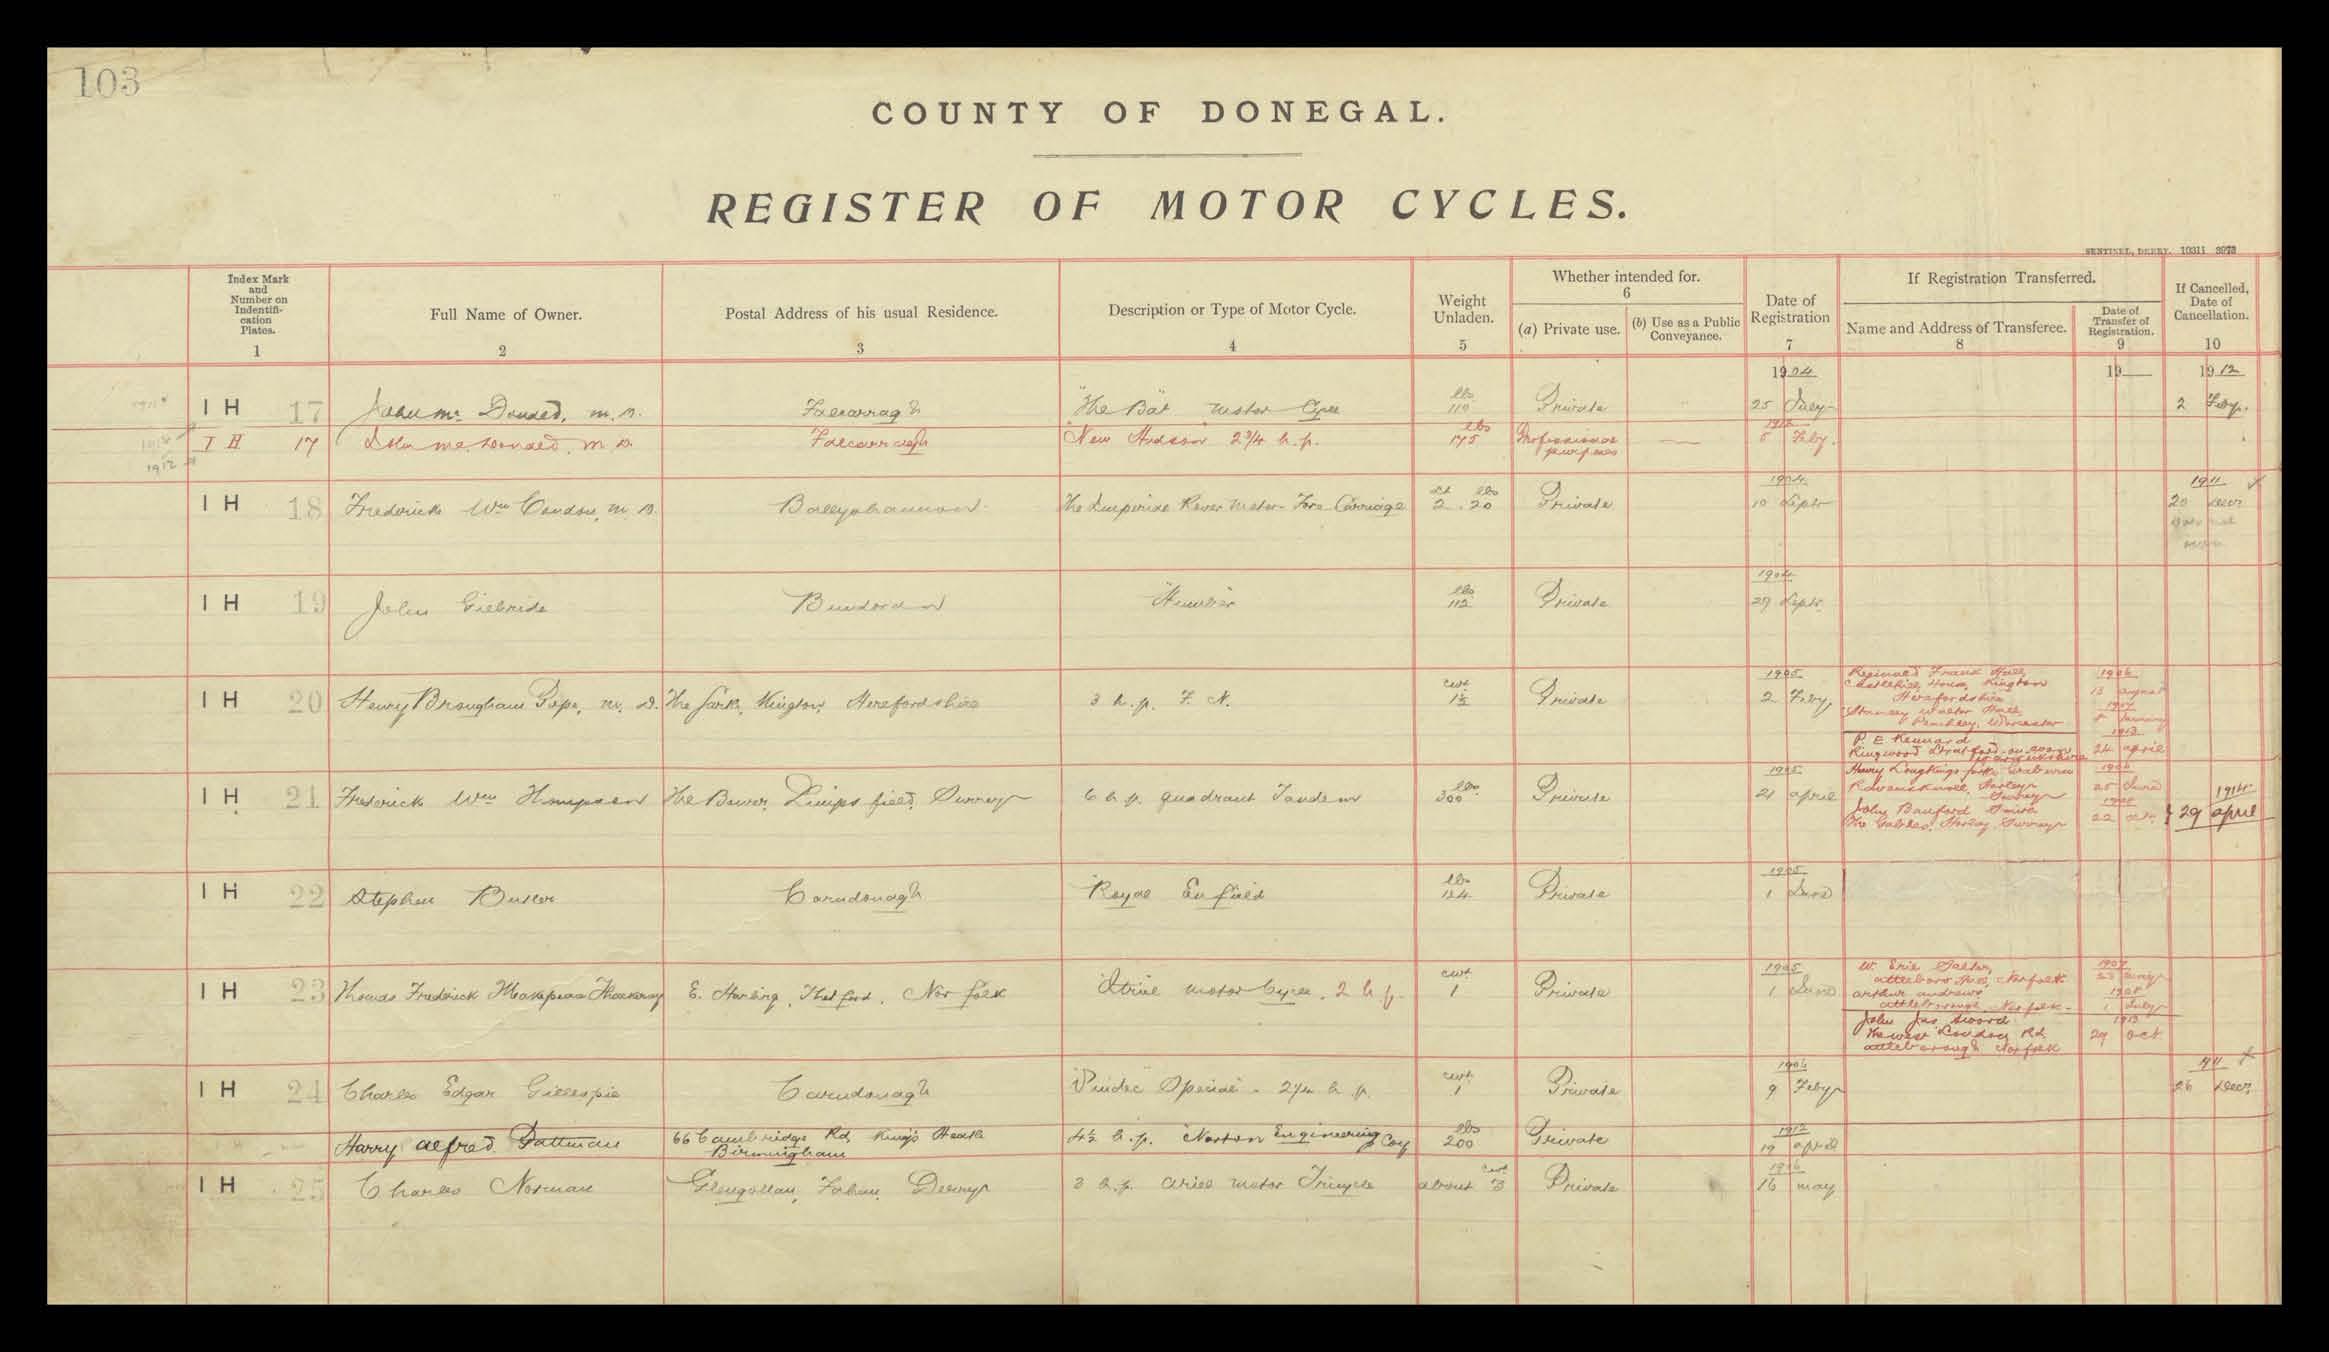 103
COUNTY OF DONEGAL.
REGISTER OF MOTOR CYCLES.
SENTINEL, DERRY. 10311 3973
Index Mark and Number on Indentifi-cation Plates. 1
Full Name of Owner. 2
Postal Address of his usual Residence. 3
Description or Type of Motor Cycle. 4
Weight Unladen. 5
Whether intended for. 6
(a) Private use.
(b) Use as a Public Conveyance.
Date of Registration 7
If Registration Transferred.
Name and Address of Transferee. 8
Date of Transfer of Registration. 9
If Cancelled, Date of Cancellation. 10
1904 19 1912
IH 17 John Mc Donald, M.B. Falcarragh "The Bat" Motor Cycle lbs 110 Private 25 July 2 Feby.
1912
IH 17 John McDonald, M.B. Falcarragh "New Hudson" 2 3/4 h.p. lbs 175 Professional purposes 5 Feby.
1912
1904 1911
IH 18 Frederick Wm Condon, M.B. Ballyshannon. The Imperial Rover Motor Fore-Carriage lbs 2 . 20 Private 10 Septr 20 Decr
1904
IH 19 John Gilbride Bundoran "Humber" lbs 112 Private 29 Septr.
1905
IH 20 Henry Brougham Pope, M.D. The Park, Kington, Herefordshire 3 h.p. F. N. cwt 1½ Private 2 Feby.
Reginald Frank Hall, Castle Hill House, Kington Herefordshire 1906 13 August
Stanley Walter Hall, Worcester 1907 8 January
P. E. Kennard Ringwood Stratford-on-Avon Warwickshire 1913 24 April
1905
IH 21 Frederick Wm Thompson The Bower, Limpsfield, Surrey 6 h.p. Quadrant Tandem lbs 300 Private 21 April
Henry 1906 25 June
Horley Surrey
John Bamford The Gables, Horley, Surrey 22 Oct.
1914 29 April
1905
IH 22 Stephen Butler Carndonagh "Royal Enfield lbs 124 Private 1 June
1905
IH 23 Thomas Frederick Makepeace Thackeray E. Harling, Thetford, Norfolk Ariel Motor Cycle, 2 h.p. cwt 1 Private 1 June
W. Eric Salter, Attleboro, Norfolk 1907 23
Arthur Andrews Attleborough, Norfolk 1908 1 July
John Jas Sword The West London Rd. Attleborough Norfolk 1913 29 Oct
1906 1911
IH 24 Charles Edgar Gillespie Carndonagh "Vindec Special" - h.p. cwt 1 Private 9 Feby 26 Decr.
1912
Harry Alfred Pattman 66 Cambridge Rd, King's Heath Birmingham 4½ h.p. "Norton Engineering Coy lbs 200 Private 19 April
1906
IH 25 Charles Norman Glengollan, Fahan, Derry 3 h.p. Ariel Motor Tricycle about cwt 3 Private 16 May